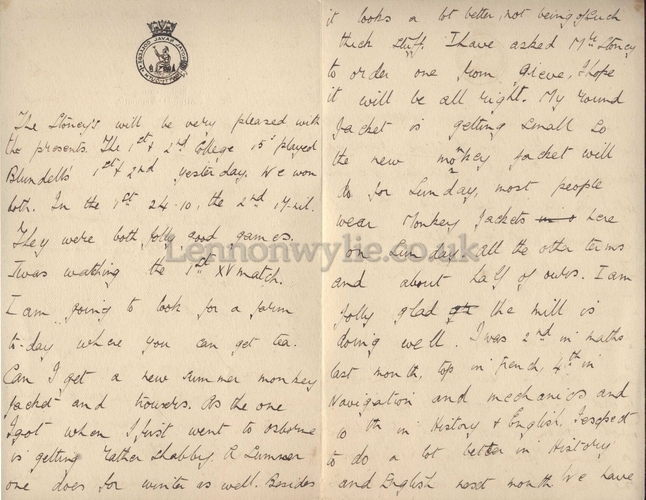 ROYAL NAVAL COLLEGE
The Stoney's will be very pleased with
the presents. The 1st & 2nd College 15s played
Blundells 1st & 2nd yesterday. We won
both. In the 1st 24-10, the 2nd 17-nil.
They were both jolly good games.
I was watching the 1st XV match.
I am going to look for a farm
to-day where you can get tea.
Can I get a new summer monkey
jacket and trousers. As the one
I got when I first went to Osborne
is getting rather shabby. A summer
one does for winter as well. Besides
it looks a lot better, not being of such
thick stuff. I have asked Mrs Stoney
to order one from Gieve. I hope
it will be all right. My round
jacket is getting small so
the new monkey jacket will
do for Sunday, most people
wear monkey jackets here
on Sunday all the other terms
and about half of ours. I am
jolly glad the mill is
doing well. I was 2nd in maths
last month, top in french, 4th in
Navigation and mechanics and
10th in History & English. I expect
to do a lot better in History
and English next month. We have
Lennonwylie.co.uk